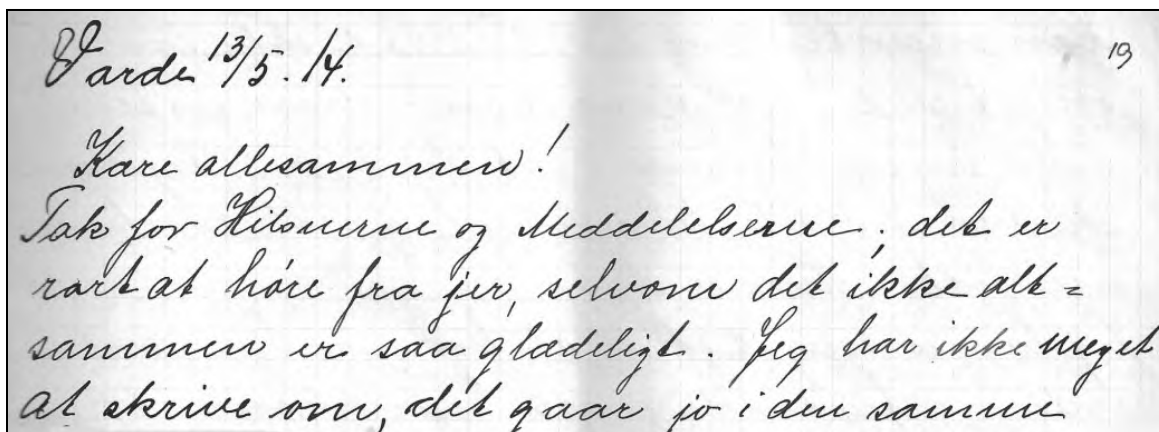 Varde 13/5. 14.
19
Kære allesammen!
Tak for Hilsnerne og Meddelelserne; det er
rart at høre fra jer, selvom det ikke alt=
sammen er saa glædeligt. Jeg har ikke meget
at skrive om, det gaar jo i den samme